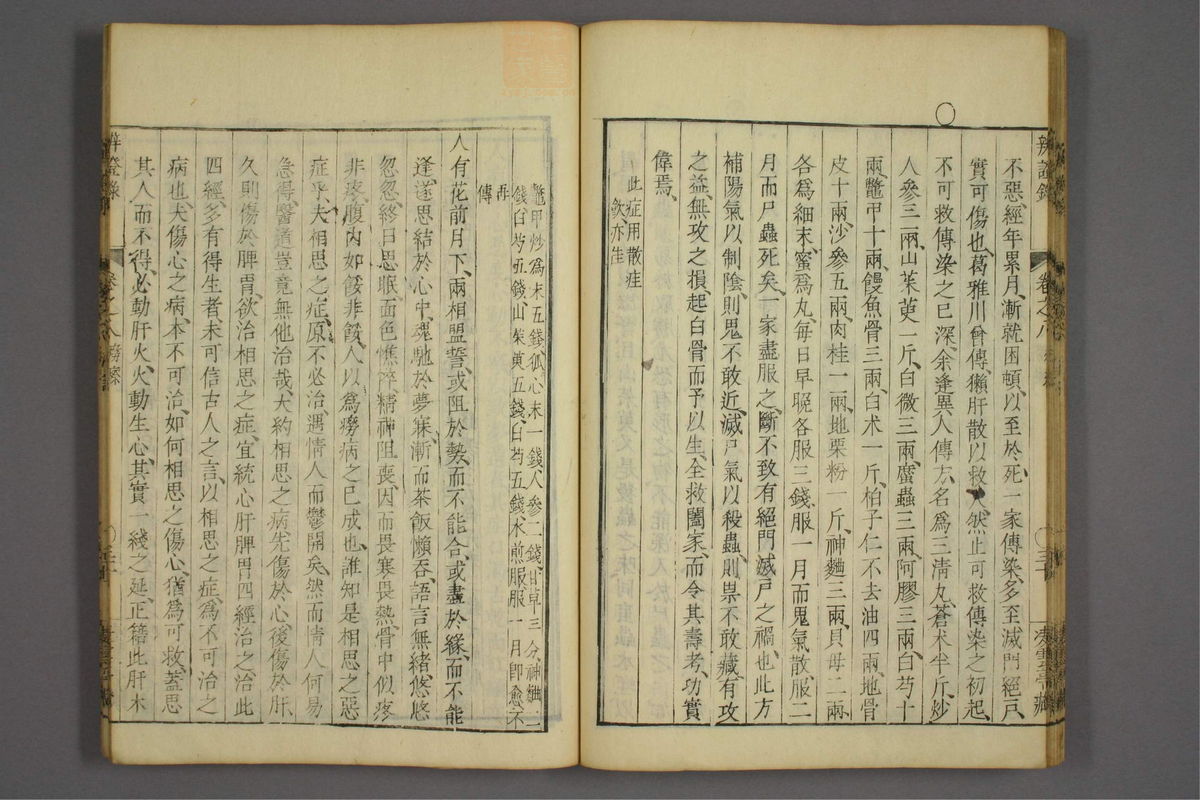 辨證錄
卷之八
不惡、經年累月、漸就困頓、以至於死、一家傳染、多至滅門絕戶、
實可傷也、葛雅川曾傳獺肝散以救人、然止可救傳染之初起、
不可救傳染之已深、余逢異人傳方、名為三清丸、蒼术半斤炒
人參三兩、山茱萸一斤、白薇三兩、䗪蟲三兩、阿膠三兩、白芍十
兩、鱉甲十兩、鰻魚骨三兩、白术一斤、柏子仁不去油四兩、地骨
皮十兩、沙參五兩、肉桂一兩、地栗粉一斤、神麯三兩、貝母二兩、
各為細末、蜜為丸、每日早晚各服三錢、服一月而鬼氣散、服二
月而尸蟲死矣、一家盡服之、斷不致有絕門滅戶之禍也、此方
補陽氣以制陰、則鬼不敢近、滅尸氣以殺蟲、則祟不敢藏、有攻
之益、無攻之損、起白骨而予以生、全救闔家、而令其壽考、功實
偉焉、
此症用散疰
飲亦佳
鱉甲炒為末五錢狐心末一錢、人參二錢、甘草三分、神麯二
錢、白芍五錢、山茱萸五錢、白芍五錢、水煎服、服一月即愈、不
再
傳
人有花前月下、兩相盟誓、或阻於勢而不能合、或盡於緣而不能
逢、遂思結於心中、魂馳於夢寐、漸而茶飯懶吞、語言無緒、悠悠
忽忽、終日思眠、面色憔悴、精神阻喪、因而畏寒畏熱、骨中似疼
非疼、腹內如餒非餒、人以為癆病之已成也、誰知是相思之惡
症乎、夫相思之症、原不必治、遇情人而鬱開矣、然而情人何易
急得、醫道豈竟無他治哉、大約相思之病、先傷於心、後傷於肝、
久則傷於脾胃、欲治相思之症、宜統心肝脾胃四經治之、治此
四經、多有得生者、未可信古人之言、以相思之症為不可治之
病也、夫傷心之病、本不可治、如何相思之傷心、猶為可救、蓋思
其人而不得、必動肝火、火動生心、其實一綫之延、正藉此肝木